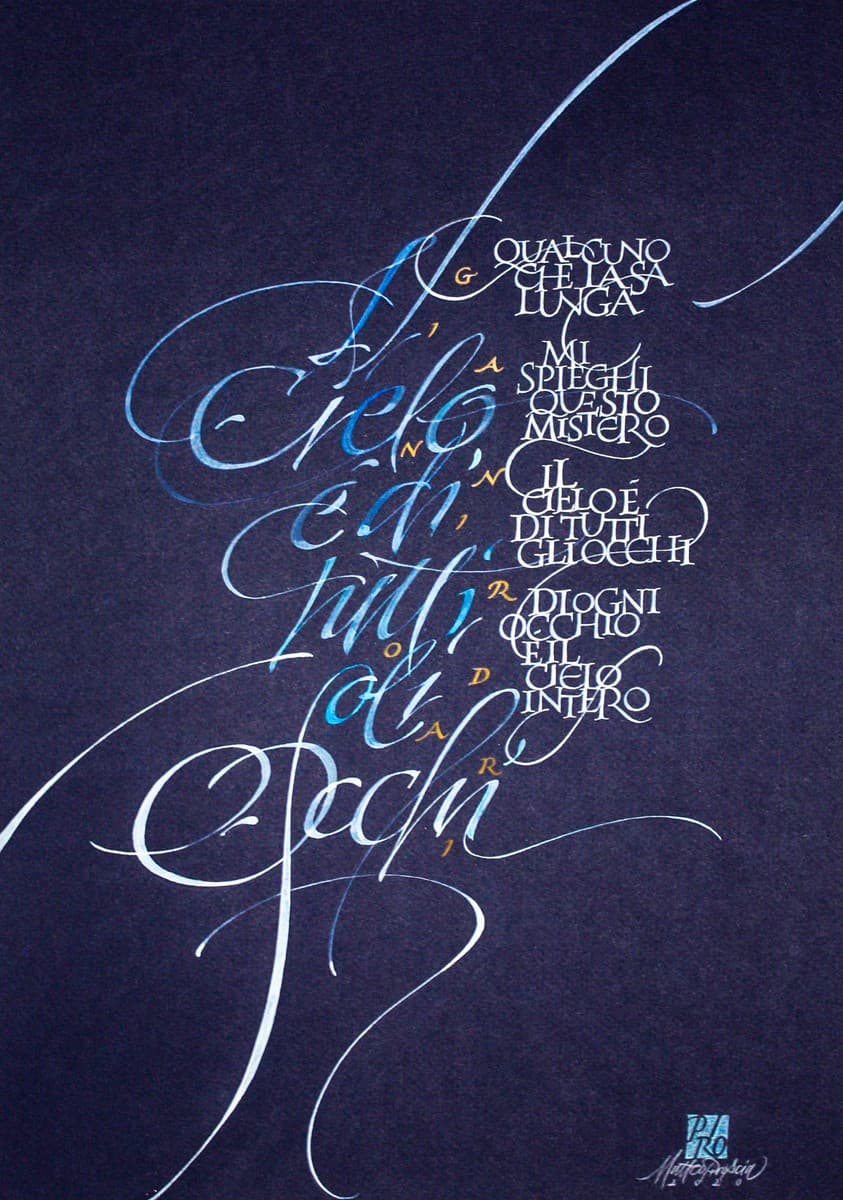 Il
Cielo
è di
tutti
gli
Occhi
GIANNI RODARI
QUALCUNO
CHE LA SA
LUNGA
MI
SPIEGHI
QUESTO
MISTERO
IL
CIELO É
DI TUTTI
GLI OCCHI
DI OGNI
OCCHIO
E IL
CIELO
INTERO
P
RO
Matteo